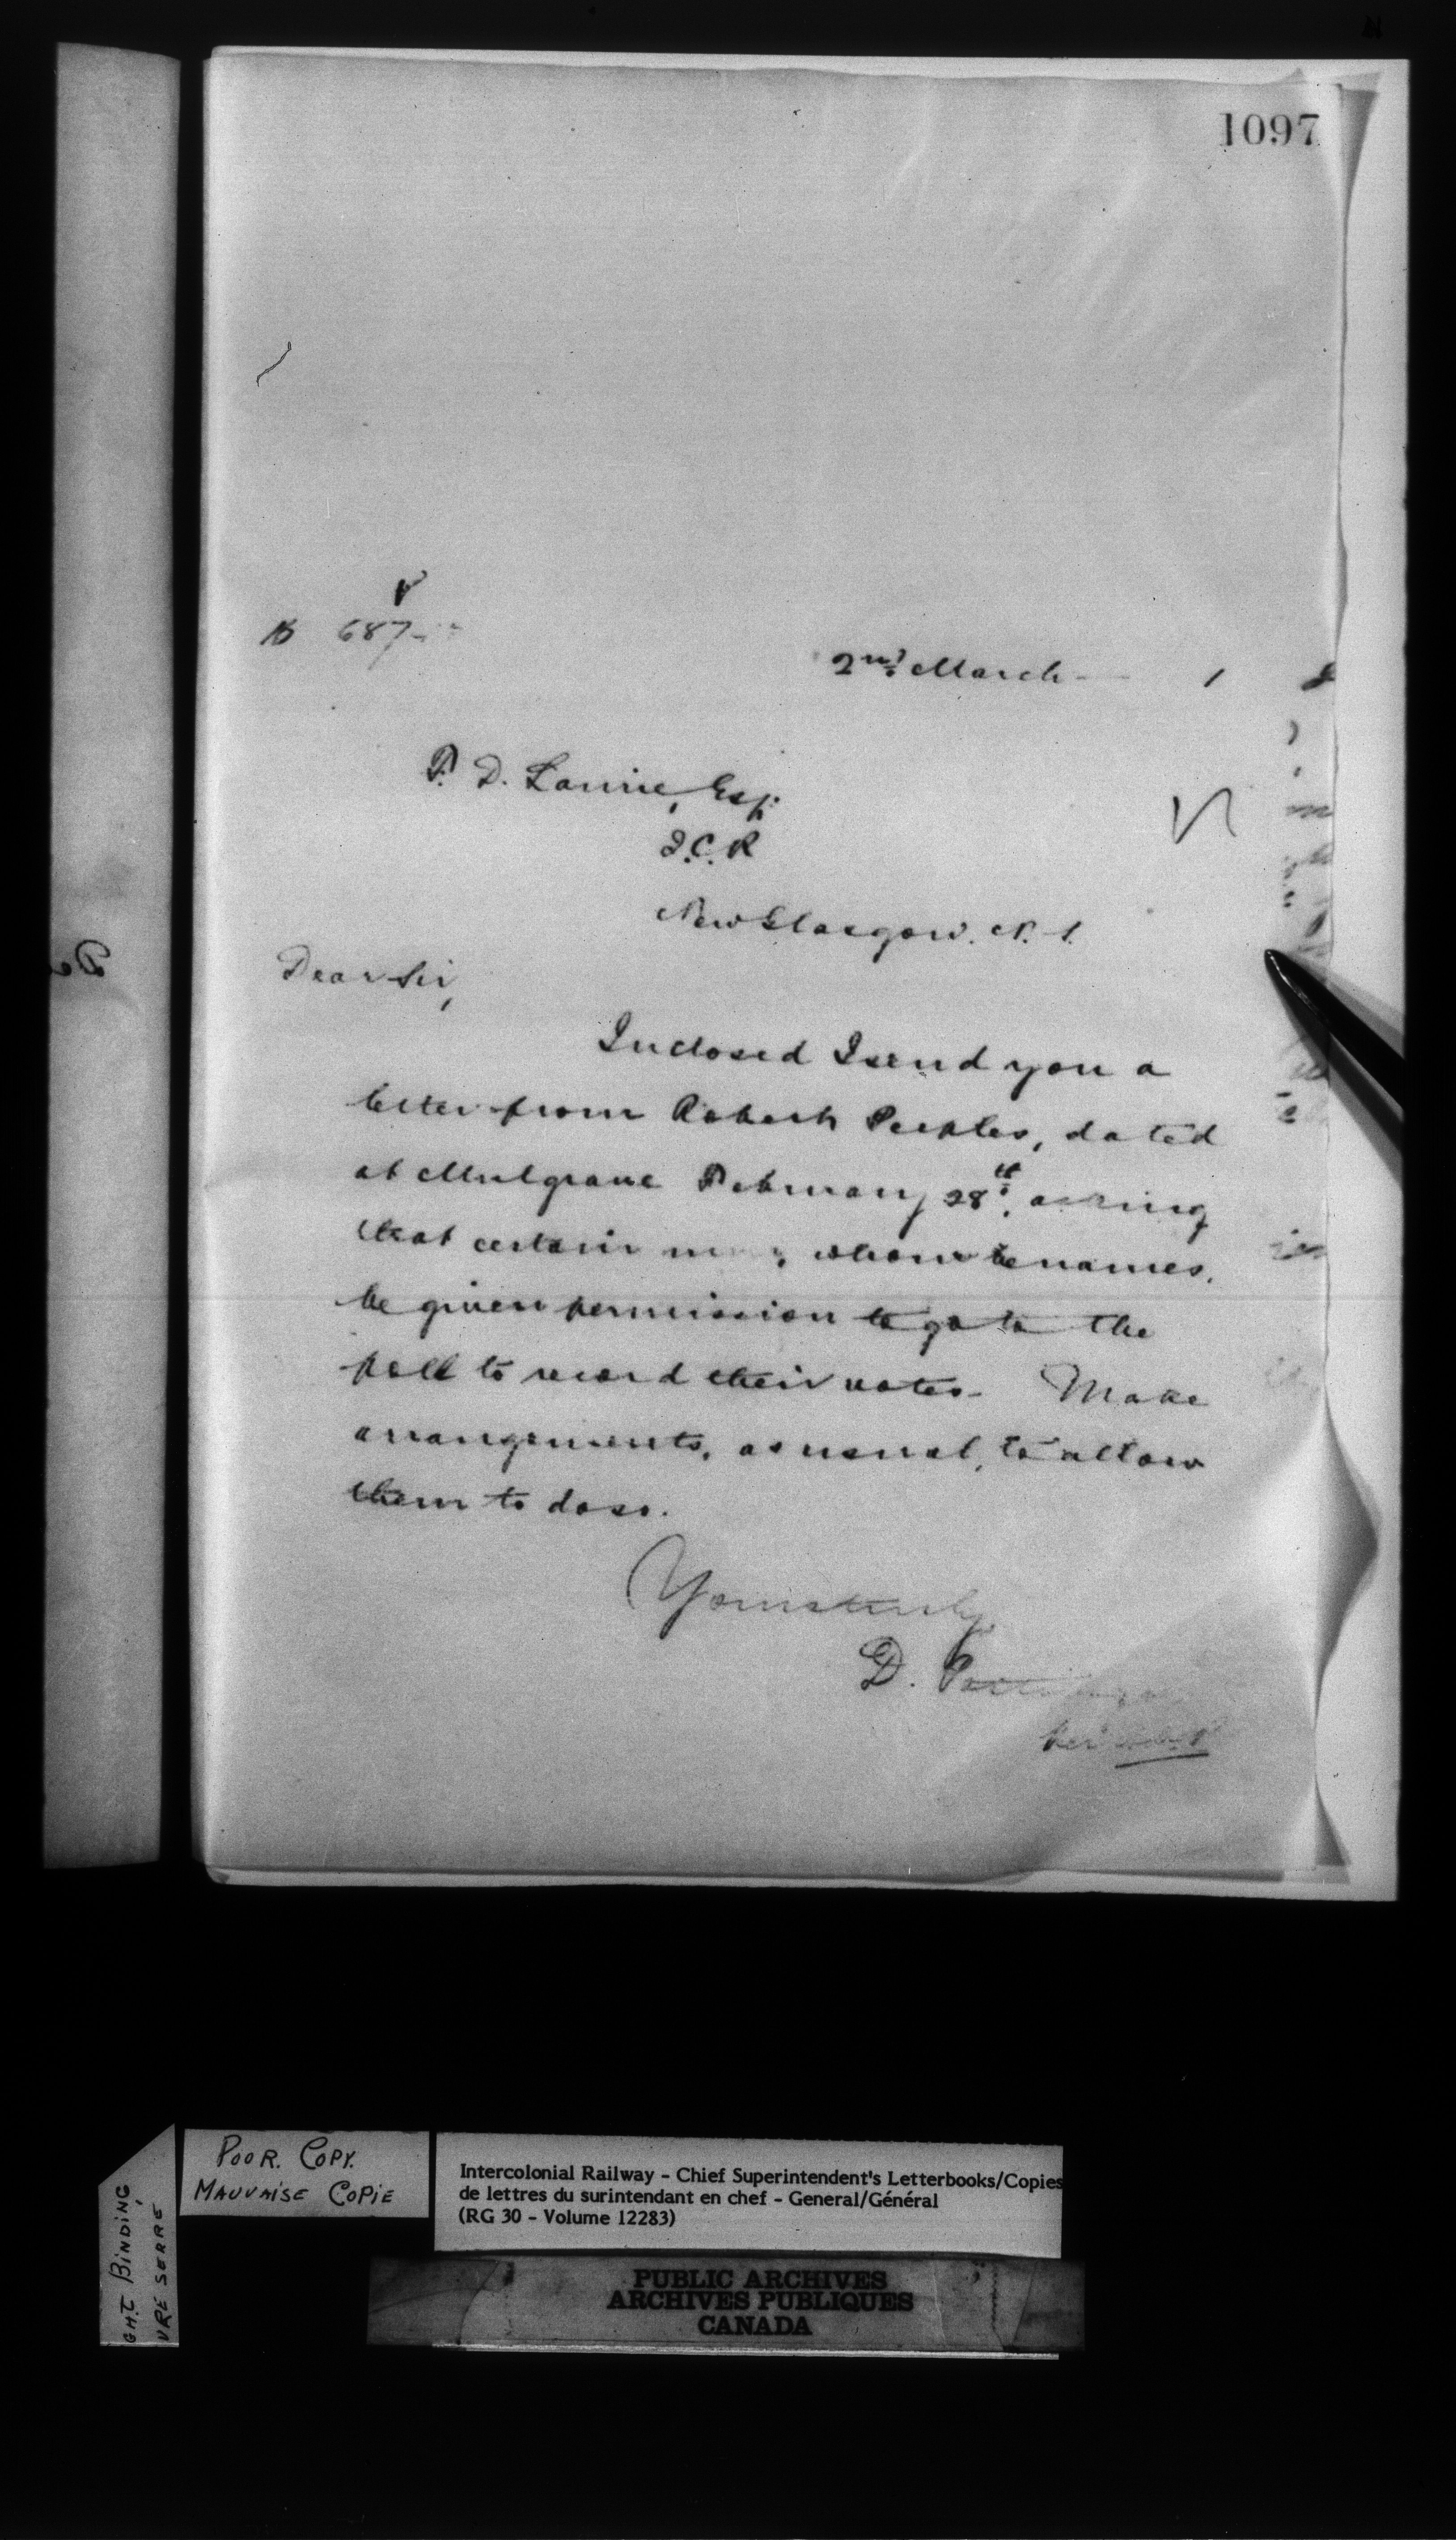 1097
687
2nd March 1
P. D. Laurie, Esq.
I.C.R
New Glasgow. N. S.
Dear Sir,
Inclosed I send you a
letter from Robert Peebles, dated
at Mulgrave February 28th, asking
that certain men, whom he names,
be given permission to go to the
poll to record their votes. Make
arrangements, as usual, to allow
them to do so.
Yours truly
D.
POOR. COPY.
MAUVAISE COPIE
GHT BINDING
VRE SERRE
Intercolonial Railway - Chief Superintendent's Letterbooks/Copies
de lettres du surintendant en chef - General/Général
(RG 30 - Volume 12283)
PUBLIC ARCHIVES
ARCHIVES PUBLIQUES
CANADA